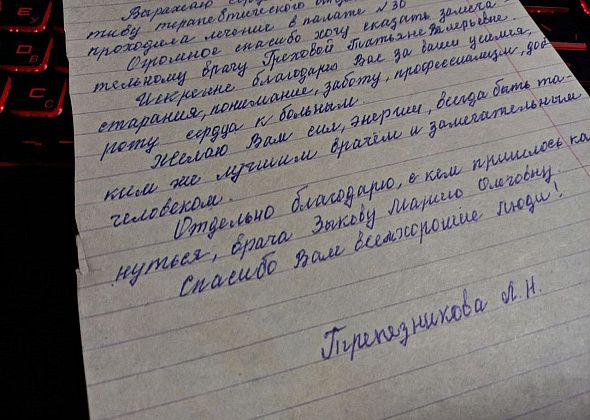 Выражаю
тиву терапевтического
проходила лечение в палате №30
Огромное спасибо хочу сказать замеча-
тельному врачу Греховой Татьяне Валерьевне.
Искренне благодарю Вас за ваши усилия,
старания, понимание, заботу, профессионализм, доб
роту сердца к больным.
Желаю Вам сил, энергии, всегда быть та-
ким же лучшим врачём и замечательным
человеком.
Отдельно благодарю, с кем пришлось ка
нуться, врача Зыкову Марию Олеговну.
Спасибо Вам всем хорошие люди!
Трепезникова Л.Н.